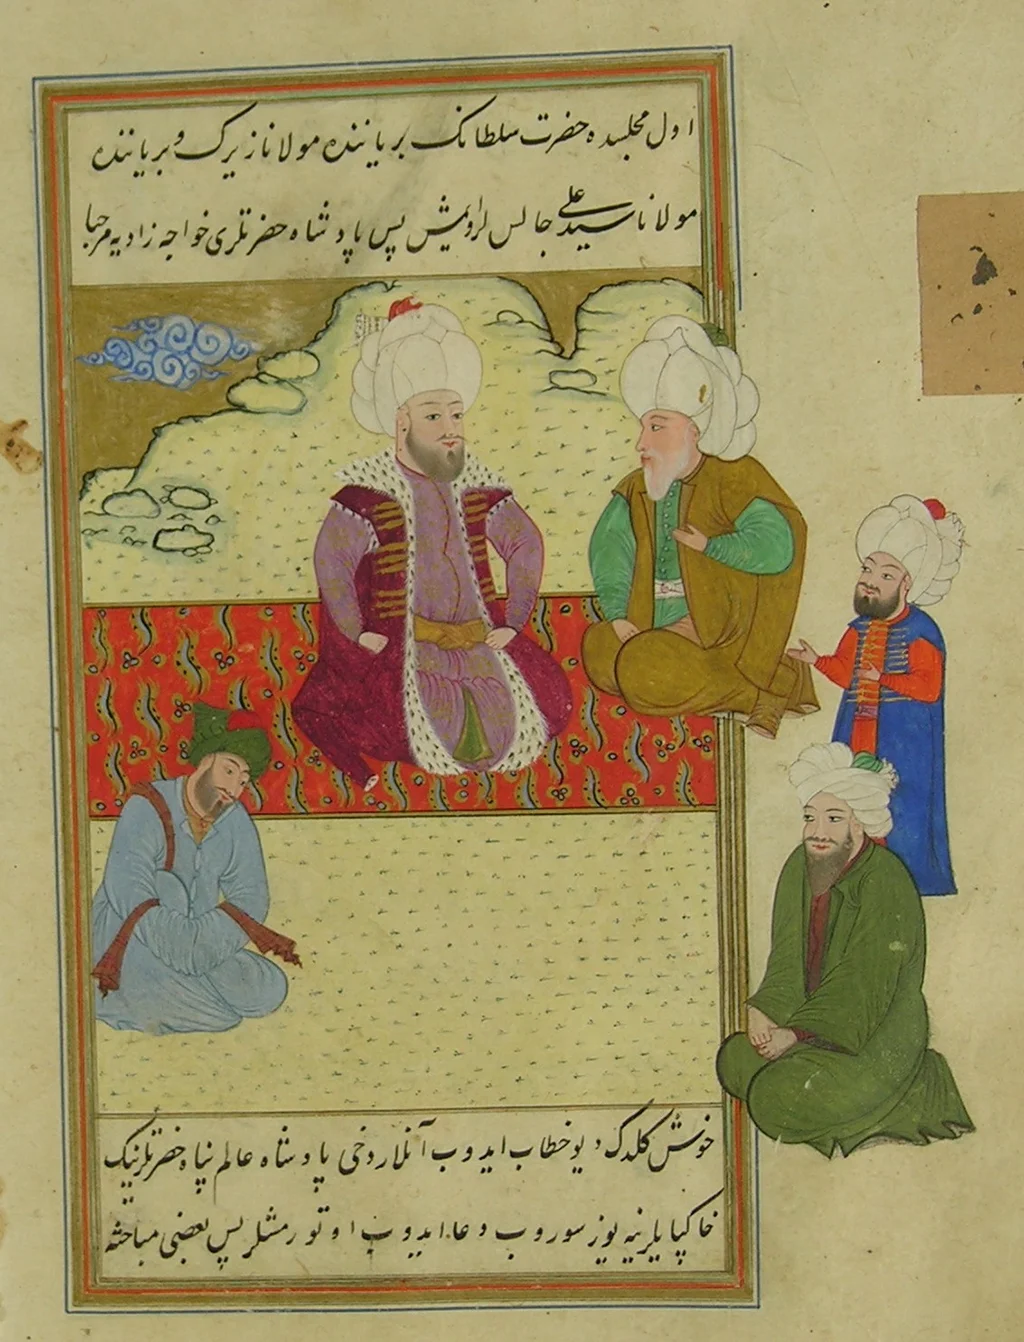 اول مجلسده حضرت سلطانك بر یاننده مولانا زیرك و بر یاننده
مولانا سید علی جالس اولمیش پس پادشاه حضرتلری خواجه زادیه مرحبا
خوش كلدك دیو خطاب ایدوب آنلار دخی پادشاه عالم پناه حضرتلرنیك
خاكپایلرینه یوز سوروب و دعا ایدوب اوتورمشلر پس بعضی مباحثه